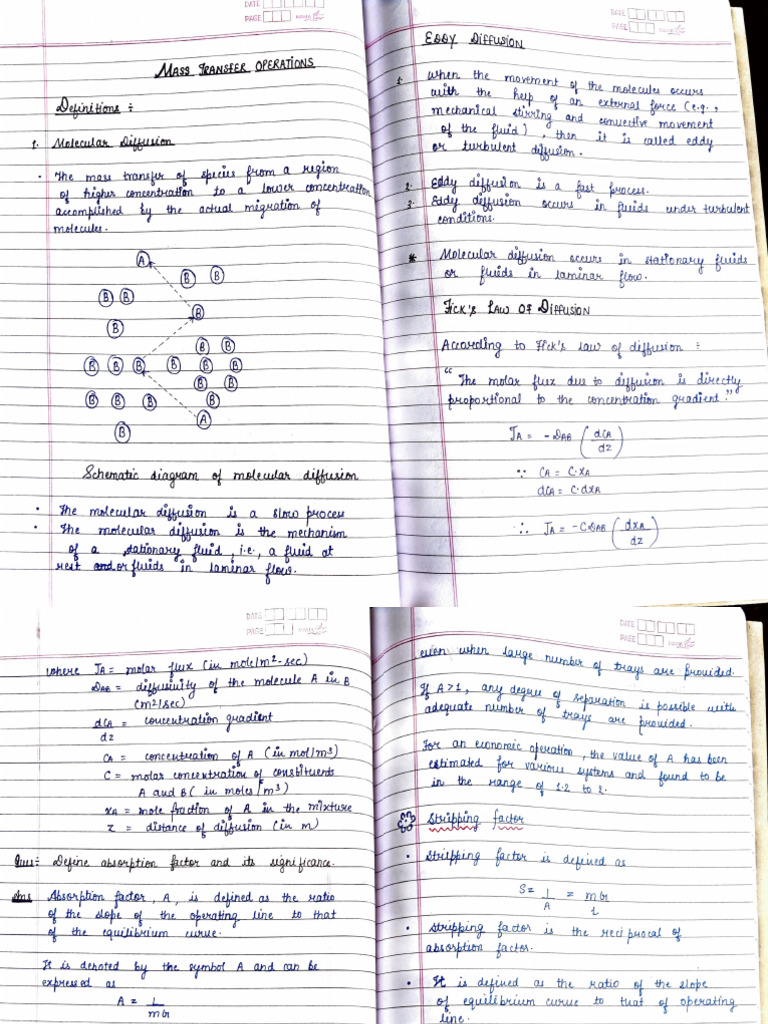 DATE
PAGE
MASS TRANSFER OPERATIONS
Definitions :
1. Molecular Diffusion
• The mass transfer of species from a region
of higher concentration to a lower concentration
accomplished by the actual migration of
molecules.
A
B B
B B
B
B
B B
B B B B B B
B B
B B B B
A
B
Schematic diagram of molecular diffusion
• The molecular diffusion is a slow process
• The molecular diffusion is the mechanism
of a stationary fluid, i.e., a fluid at
rest and/or fluids in laminar flow.
DATE
PAGE
EDDY DIFFUSION
1. When the movement of the molecules occurs
with the help of an external force (e.g.,
mechanical stirring and convective movement
of the fluid), then it is called eddy
or turbulent diffusion.
2. Eddy diffusion is a fast process.
3. Eddy diffusion occurs in fluids under turbulent
conditions.
* Molecular diffusion occurs in stationary fluids
or fluids in laminar flow.
FICK'S LAW OF DIFFUSION
According to Fick's law of diffusion :
"The molar flux due to diffusion is directly
proportional to the concentration gradient."
JA = -DAB (dCA/dz)
∵ CA = C.xA
dCA = C.dxA
∴ JA = -C DAB (dxA/dz)
DATE
PAGE
where JA = molar flux (in mole/m2-sec)
DAB = diffusivity of the molecule A in B
(m2/sec)
dCA/dz = concentration gradient
CA = concentration of A (in mol/m3)
C = molar concentration of constituents
A and B (in moles/m3)
xA = mole fraction of A in the mixture
z = distance of diffusion (in m)
Ques: Define absorption factor and its significance.
Ans Absorption factor, A, is defined as the ratio
of the slope of the operating line to that
of the equilibrium curve.
It is denoted by the symbol A and can be
expressed as
A = L/mG
DATE
PAGE
even when large number of trays are provided.
If A>1, any degree of separation is possible with
adequate number of trays are provided.
For an economic operation, the value of A has been
estimated for various systems and found to be
in the range of 1.2 to 2.
Stripping factor
• Stripping factor is defined as
S = 1/A = mG/L
• Stripping factor is the reciprocal of
absorption factor.
• It is defined as the ratio of the slope
of equilibrium curve to that of operating
line.